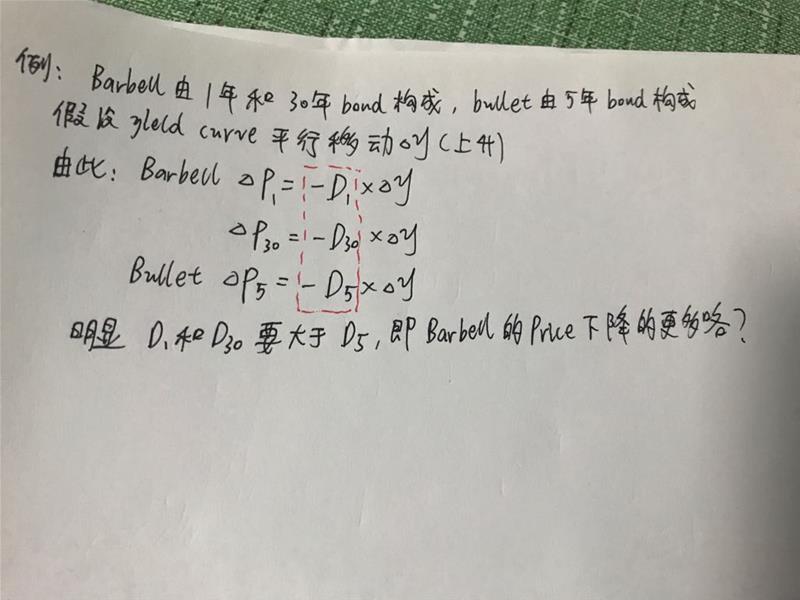 例: Barbell 由 1年和 30年 bond 构成, bullet 由 5年 bond 构成
假设 yield curve 平行移动 △y (上升)
由此: Barbell △P₁ = -D₁ × △y
△P₃₀ = -D₃₀ × △y
Bullet △P₅ = -D₅ × △y
明显 D₁ 和 D₃₀ 要大于 D₅, 即 Barbell 的 Price 下降的更多咯?